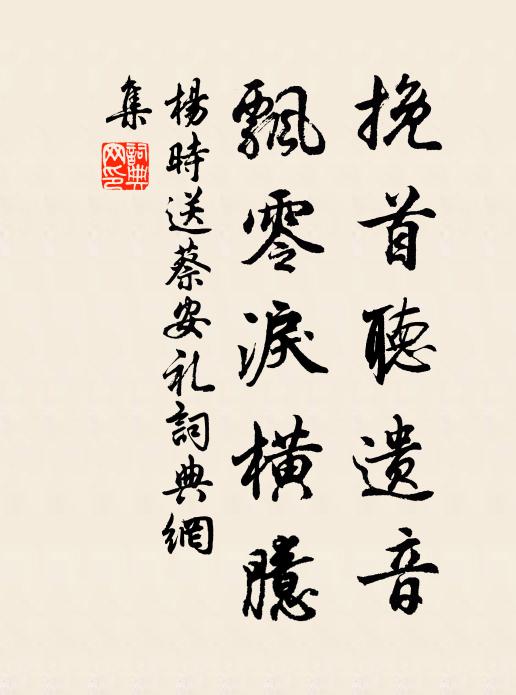 挽首聽遺音
飄零淚橫臆
楊時送蔡安礼詞典網
集
詞典網印